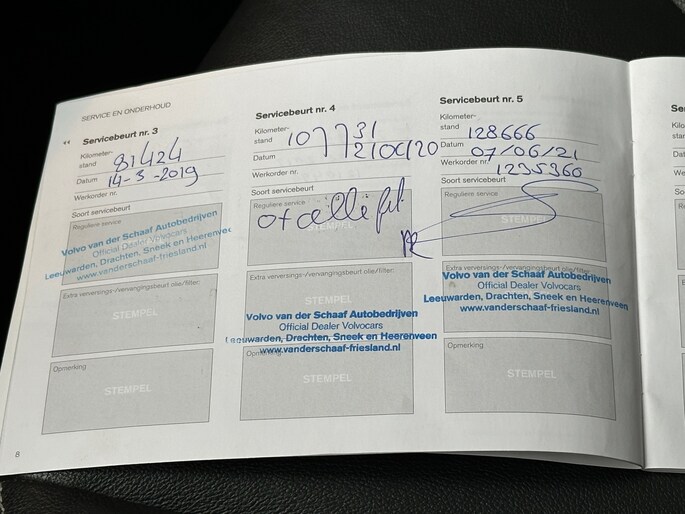 SERVICE EN ONDERHOUD
◂◂
Servicebeurt nr. 3
Kilometer-
stand 81424
Datum 14-3-2019
Werkorder nr.
Soort servicebeurt
Reguliere service
Volvo van der Schaaf Autobedrijven
Official Dealer Volvocars
Leeuwarden, Drachten, Sneek en Heerenvee
www.vanderschaaf-friesland.nl
Extra verversings-/vervangingsbeurt olie/filter:
STEMPEL
Opmerking
STEMPEL
8
Servicebeurt nr. 4
Kilometer-
stand 107731
Datum
Werkorder nr.
Soort servicebeurt
Reguliere service
STEMPEL
Extra verversings-/vervangingsbeurt olie/filter:
STEMPEL
Volvo van der Schaaf Autobedrijven
Official Dealer Volvocars
Leeuwarden, Drachten, Sneek en Heerenveen
www.vanderschaaf-friesland.nl
Opmerking
STEMPEL
Servicebeurt nr. 5
Kilometer-
stand 128666
Datum 07/06/21
Werkorder nr. 1235360
Soort servicebeurt
Reguliere service
STEMPEL
Extra verversings-/vervangingsbeurt olie/filter:
Volvo van der Schaaf Autobedrijven
Official Dealer Volvocars
Leeuwarden, Drachten, Sneek en Heerenveen
www.vanderschaaf-friesland.nl
Opmerking
STEMPEL